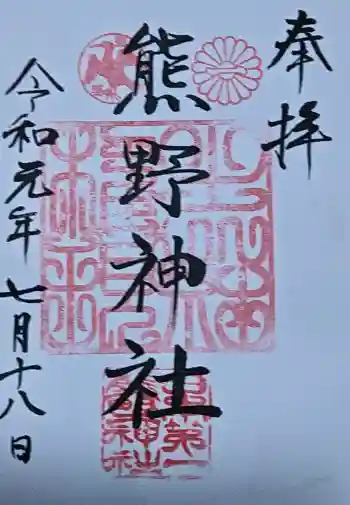 奉拝
熊野神社
令和元年七月十八日